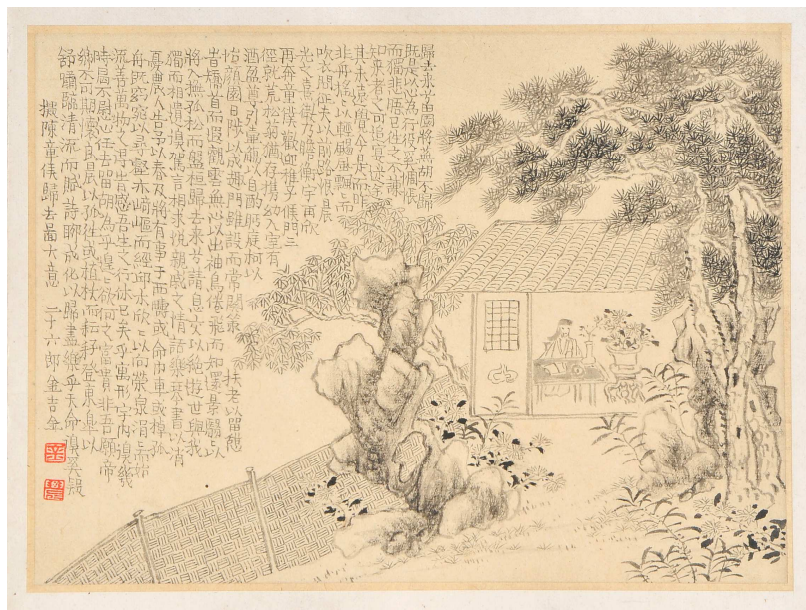 歸去來兮田園將蕪胡不歸
既是以心為行役奚惆悵
而獨悲悟已往之不諫
知來者之可追寔迷塗
其未遠覺今是而昨
非舟搖〻以輕颺風飄〻而
吹衣問征夫以前路恨晨
光之熹微乃瞻衡宇再欣
再奔童僕歡迎稚子候門三
徑就荒松菊猶存攜幼入室有
酒盈罇引壺觴以自酌眄庭柯以
怡顏園日陟以成趣門雖設而常關策扶老以留憩
時矯首而遐觀雲無心以出岫鳥倦飛而知還景翳〻以
將入撫孤松而盤桓歸去來兮請息交以絕遊世與我
獨而相遺復駕言相求悅親戚之情話樂琴書以消
憂農人告予以春及將有事于西疇或命巾車或棹孤
舟既窈窕以尋壑亦崎嶇而經邱木欣〻以向榮泉涓〻而始
流善萬物之得時感吾生之行休已矣乎寓形宇內復幾
時曷不委心任去留胡為乎遑〻欲何之富貴非吾願帝
鄉不可期懷良晨以孤往或植杖而耘耔登東皋以
舒嘯臨清流而賦詩聊乘化以歸盡樂乎天命復奚疑
擬陳章侯歸去圖大意 二十六郎金吉金